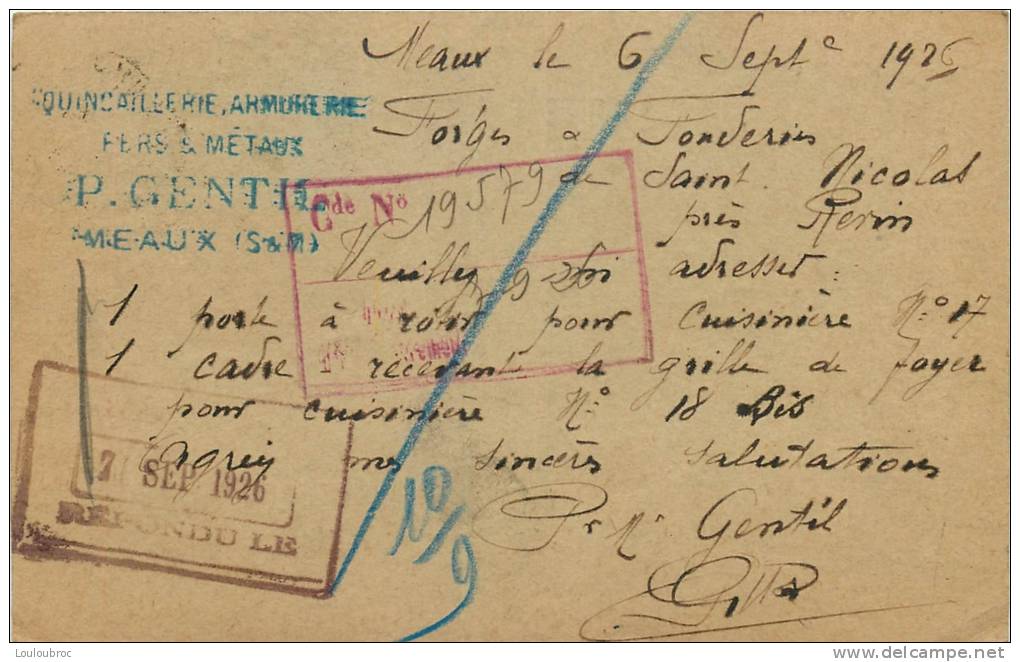 Meaux le 6 Septe 1926
QUINCAILLERIE, ARMURERIE
FERS & METAUX
P. GENTIL
MEAUX (S&M)
Forges & Fonderies
de Saint. Nicolas
près Revin
Cde No 19579
Veuillez adresser:
1 porte à rôtir pour cuisinière No 17
1 cadre recevant la grille de foyer
pour cuisinière No 18 Bis
Agréez mes sincères salutations
7 SEP 1926
REPONDU LE
10/9
Pr Mr Gentil
Louloubroc
delcampe.net